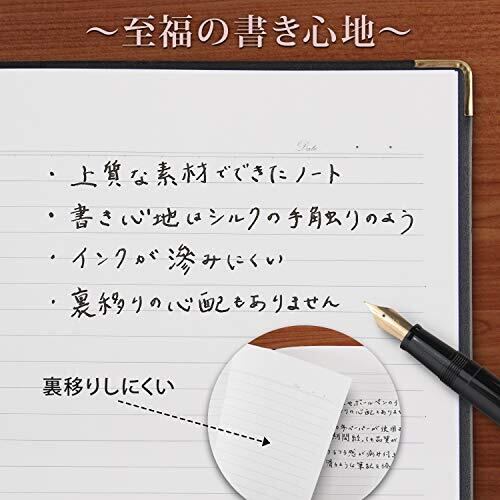 ～至福の書き心地～
Date
・上質な素材でできたノート
・書き心地はシルクの手触りのよう
・インクが滲みにくい
・裏移りの心配もありません
裏移りしにくい